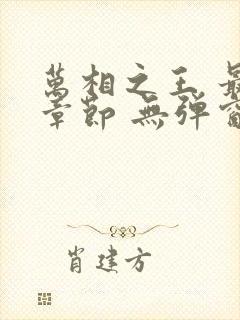 萬相之王 最
章節 無弹窗
肖建方